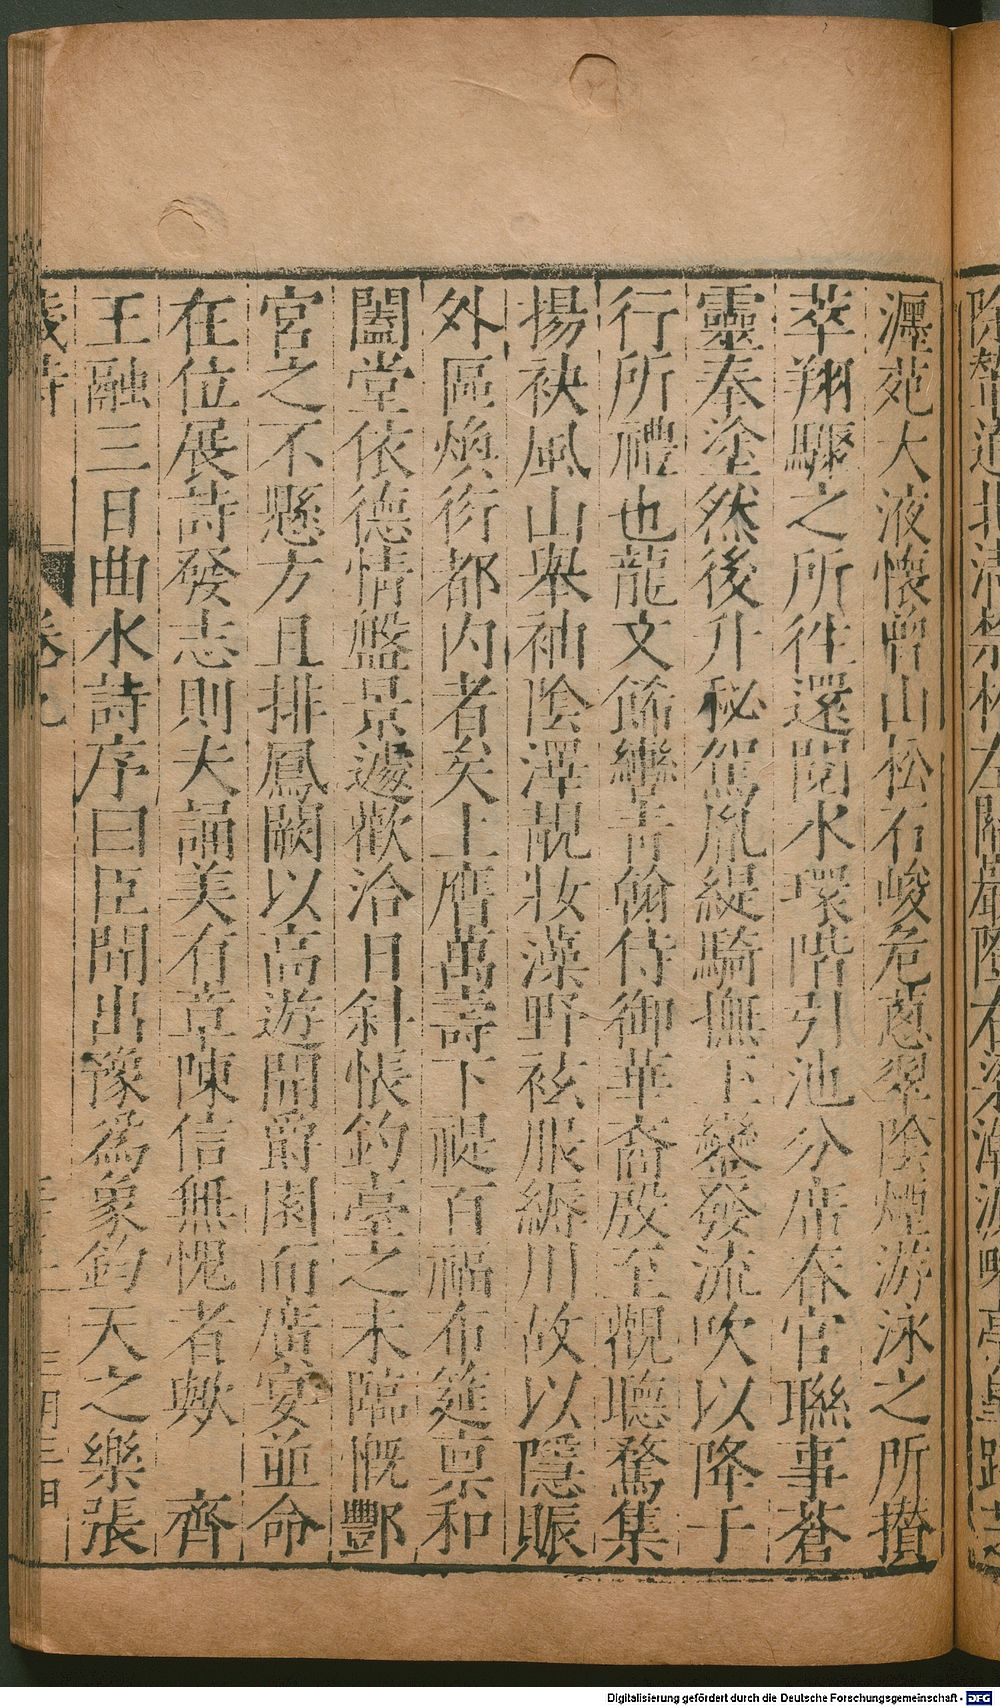 瀍苑大液懷曾山松石峻危蔥翠陰煙游泳之所攢
萃翔驟之所往還閱水環階引池分席春官聯事蒼
靈奉塗然後升秘駕胤緹騎撫玉鑾發流吹以降于
行所禮也龍文飾轡青翰侍御華裔殷至觀聽騖集
揚袂風山舉袖陰澤靚妝藻野袨服縟川故以隱賑
外區煥衍都內者矣上膺萬壽下禔百福布筵稟和
闔堂依德情盤景遽歡洽日斜悵鈞臺之未臨慨酆
宮之不懸方且排鳳闕以高遊開爵園而廣宴並命
在位展詩發志則夫誦美有章陳信無愧者歟 齊
王融三日曲水詩序曰臣聞出豫為象鈞天之樂張
歲時 卷九 三月三日
Digitalisierung gefördert durch die Deutsche Forschungsgemeinschaft - DFG